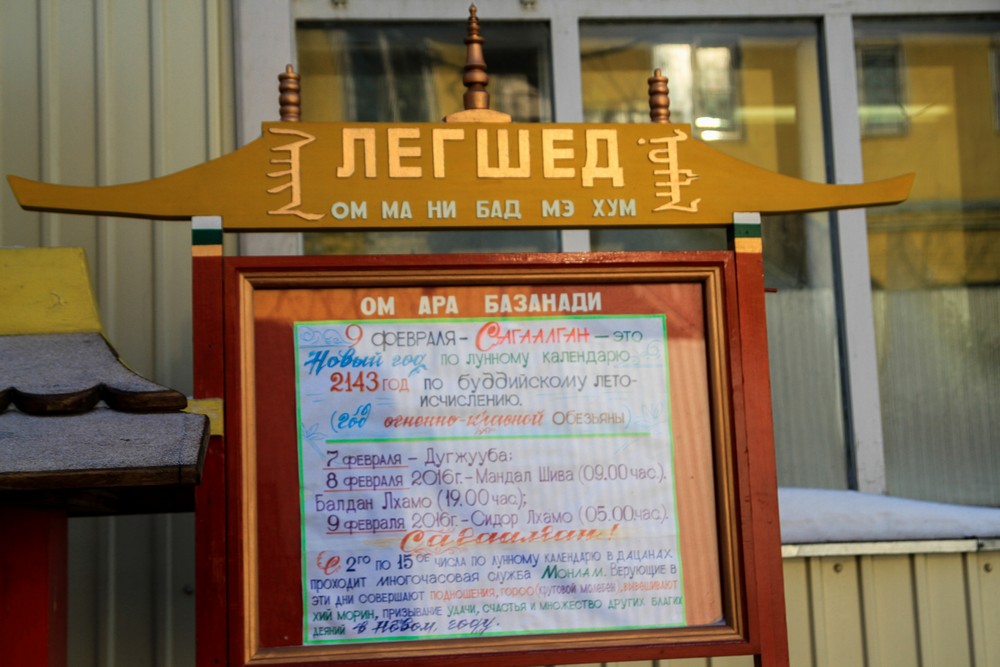 ЛЕГШЕД
ОМ МА НИ БАД МЭ ХУМ
ОМ АРА БАЗАНАДИ
9 ФЕВРАЛЯ - САГААЛГАН - это
Новый год по лунному календарю
2143 год по буддийскому лето-
исчислению.
(год огненно-красной Обезьяны)
7 февраля - Дугжууба:
8 февраля 2016г.-Мандал Шива (09.00 час).
Балдан Лхамо (19.00 час);
9 февраля 2016г.-Сидор Лхамо (05.00час).
Сагаалган!
С 2го по 15ое числа по лунному календарю в дацанах
проходит многочасовая служба Монлам. Верующие в
эти дни совершают подношения, гороо (круговой молебен), вывешивают
хий морин, призывание удачи, счастья и множество других благих
деяний в Новом году.